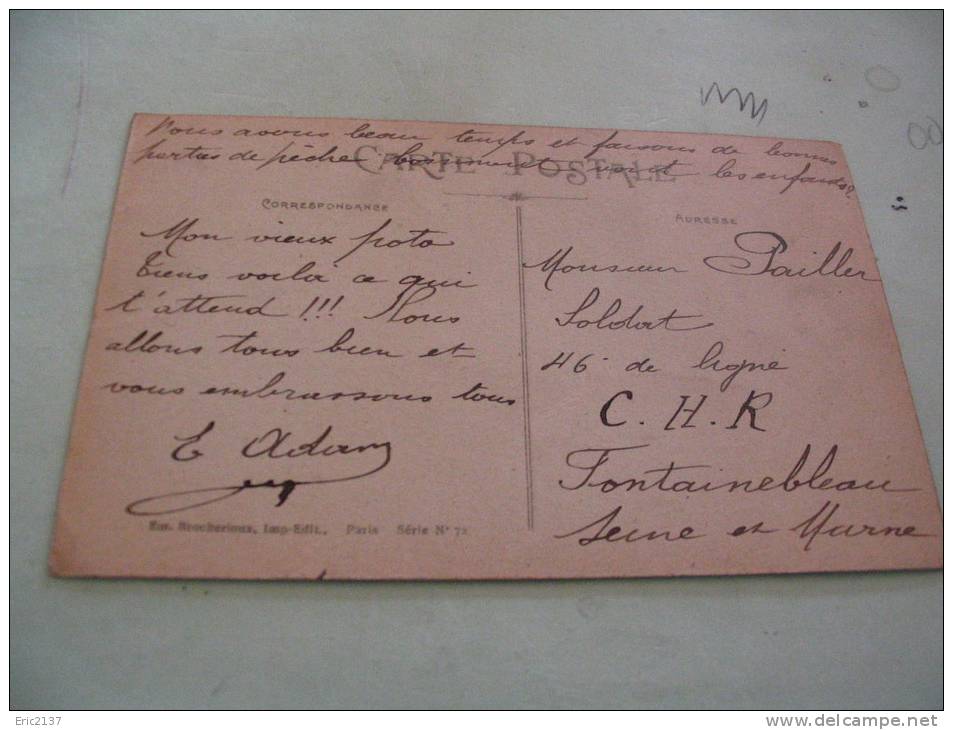 Nous avons beau temps et faisons de bonnes
parties de pêche les enfants
CARTE POSTALE
CORRESPONDANCE
ADRESSE
Mon vieux poto
tiens voilà ce qui
t'attend !!! Nous
allons tous bien et
vous embrassons tous
E Adam
Em. Brocherioux, Imp-Edit., Paris Série N° 72
Monsieur Pailler
Soldat
46e de ligne
C.H.R
Fontainebleau
Seine et Marne
Eric2137
www.delcampe.net